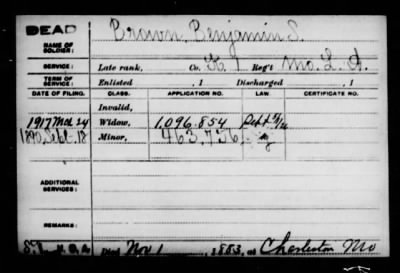 DEAD
NAME OF SOLDIER: Brown, Benjamin S.
SERVICE: Late rank, Co. K, 1 Reg't Mo. L. A.
TERM OF SERVICE: Enlisted , 1 Discharged , 1
DATE OF FILING. CLASS. APPLICATION NO. LAW. CERTIFICATE NO.
Invalid,
1917 Mch 24 Widow, 1.096.854 Sept 8/16
1890, Sept. 18 Minor, 463.756,
ADDITIONAL SERVICES:
REMARKS:
Died Nov 1 , 1883, at Charleston Mo